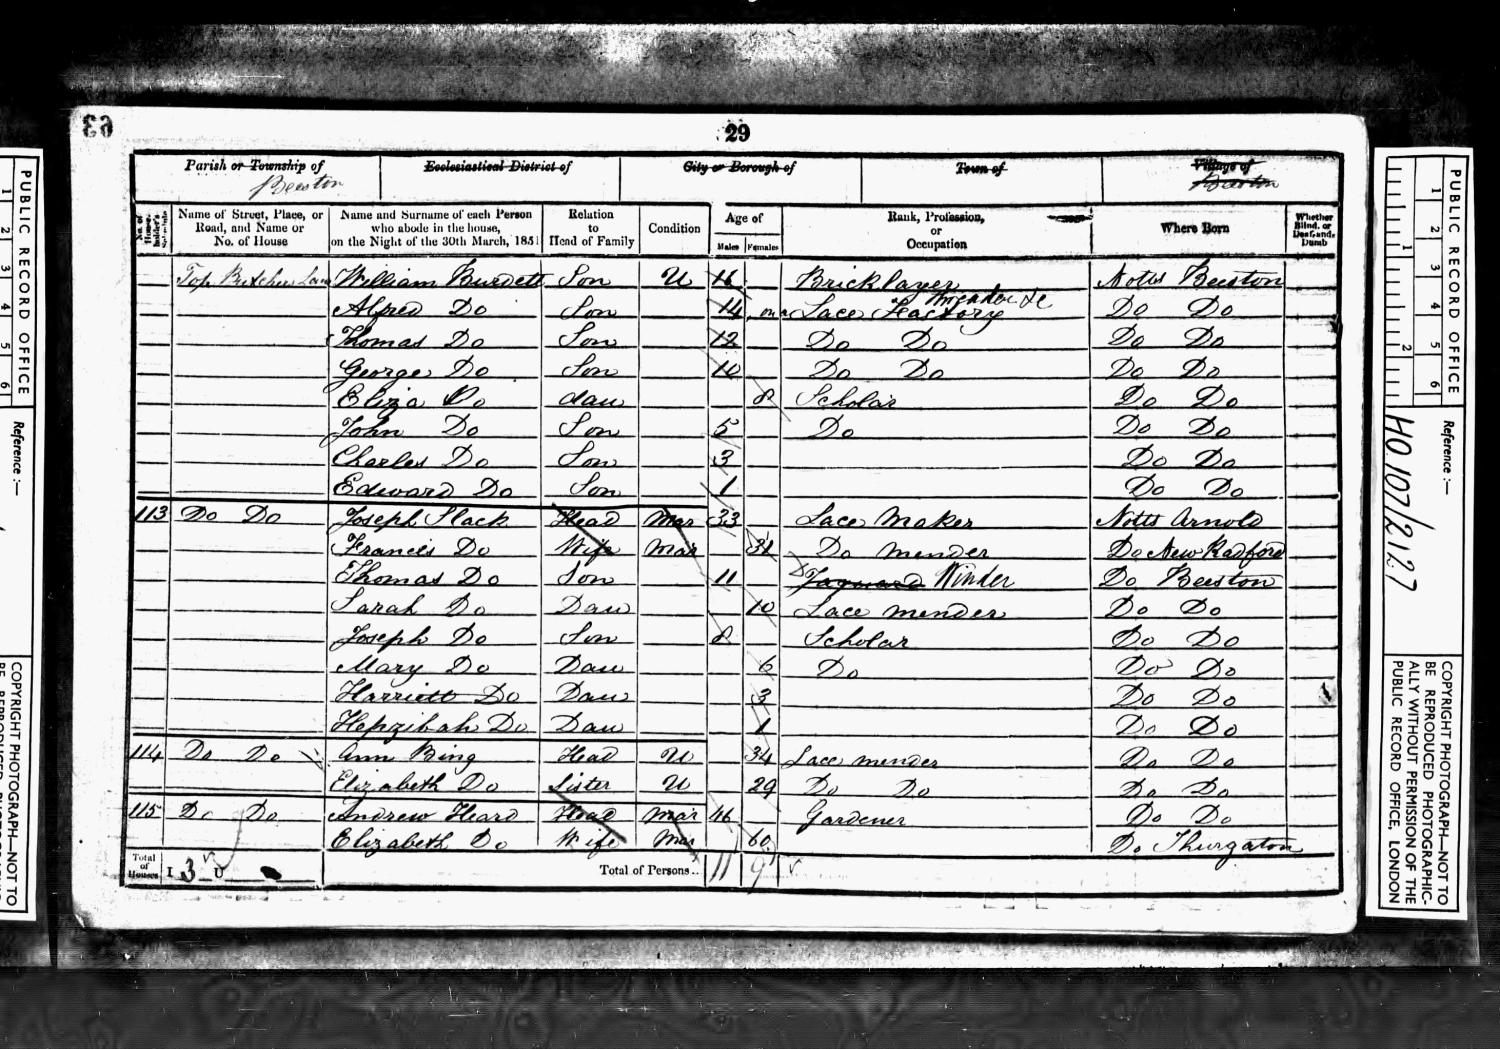 63
29
Parish or Township of
Beeston
Ecclesiastical District of
City or Borough of
Town of
Village of
Beeston
No. of House-holder's Schedule
Name of Street, Place, or Road, and Name or No. of House
Name and Surname of each Person who abode in the house, on the Night of the 30th March, 1851
Relation to Head of Family
Condition
Age of
Males Females
Rank, Profession, or Occupation
Where Born
Whether Blind, or Deaf-and-Dumb
Top Butchers Lane William Burdett Son U 16 Bricklayer Notts Beeston
Alfred Do Son 14 Lace Factory Threader &c Do Do
Thomas Do Son 12 Do Do Do Do
George Do Son 10 Do Do Do Do
Eliza Do dau 8 Scholar Do Do
John Do Son 5 Do Do Do
Charles Do Son 3 Do Do
Edward Do Son 1 Do Do
113 Do Do Joseph Slack Head Mar 33 Lace Maker Notts Arnold
Francis Do Wife Mar 31 Do mender Do New Radford
Thomas Do Son 11 Jaquard Winder Do Beeston
Sarah Do Dau 10 Lace mender Do Do
Joseph Do Son 8 Scholar Do Do
Mary Do Dau 6 Do Do Do
Harriett Do Dau 3 Do Do
Hepzibah Do Dau 1 Do Do
114 Do Do Ann Bing Head U 34 Lace mender Do Do
Elizabeth Do Sister U 29 Do Do Do Do
115 Do Do Andrew Heard Head Mar 46 Gardener Do Do
Elizabeth Do Wife Mar 60 Do Thurgaton
Total of Houses I 3 U Total of Persons.. 11 9
PUBLIC RECORD OFFICE
1 2 3 4 5 6
Reference :—
HO 107/2127
COPYRIGHT PHOTOGRAPH—NOT TO
BE REPRODUCED PHOTOGRAPHIC-
ALLY WITHOUT PERMISSION OF THE
PUBLIC RECORD OFFICE, LONDON
PUBLIC RECORD OFFICE
1 2 3 4 5 6
Reference :—
COPYRIGHT PHOTOGRAPH—NOT TO